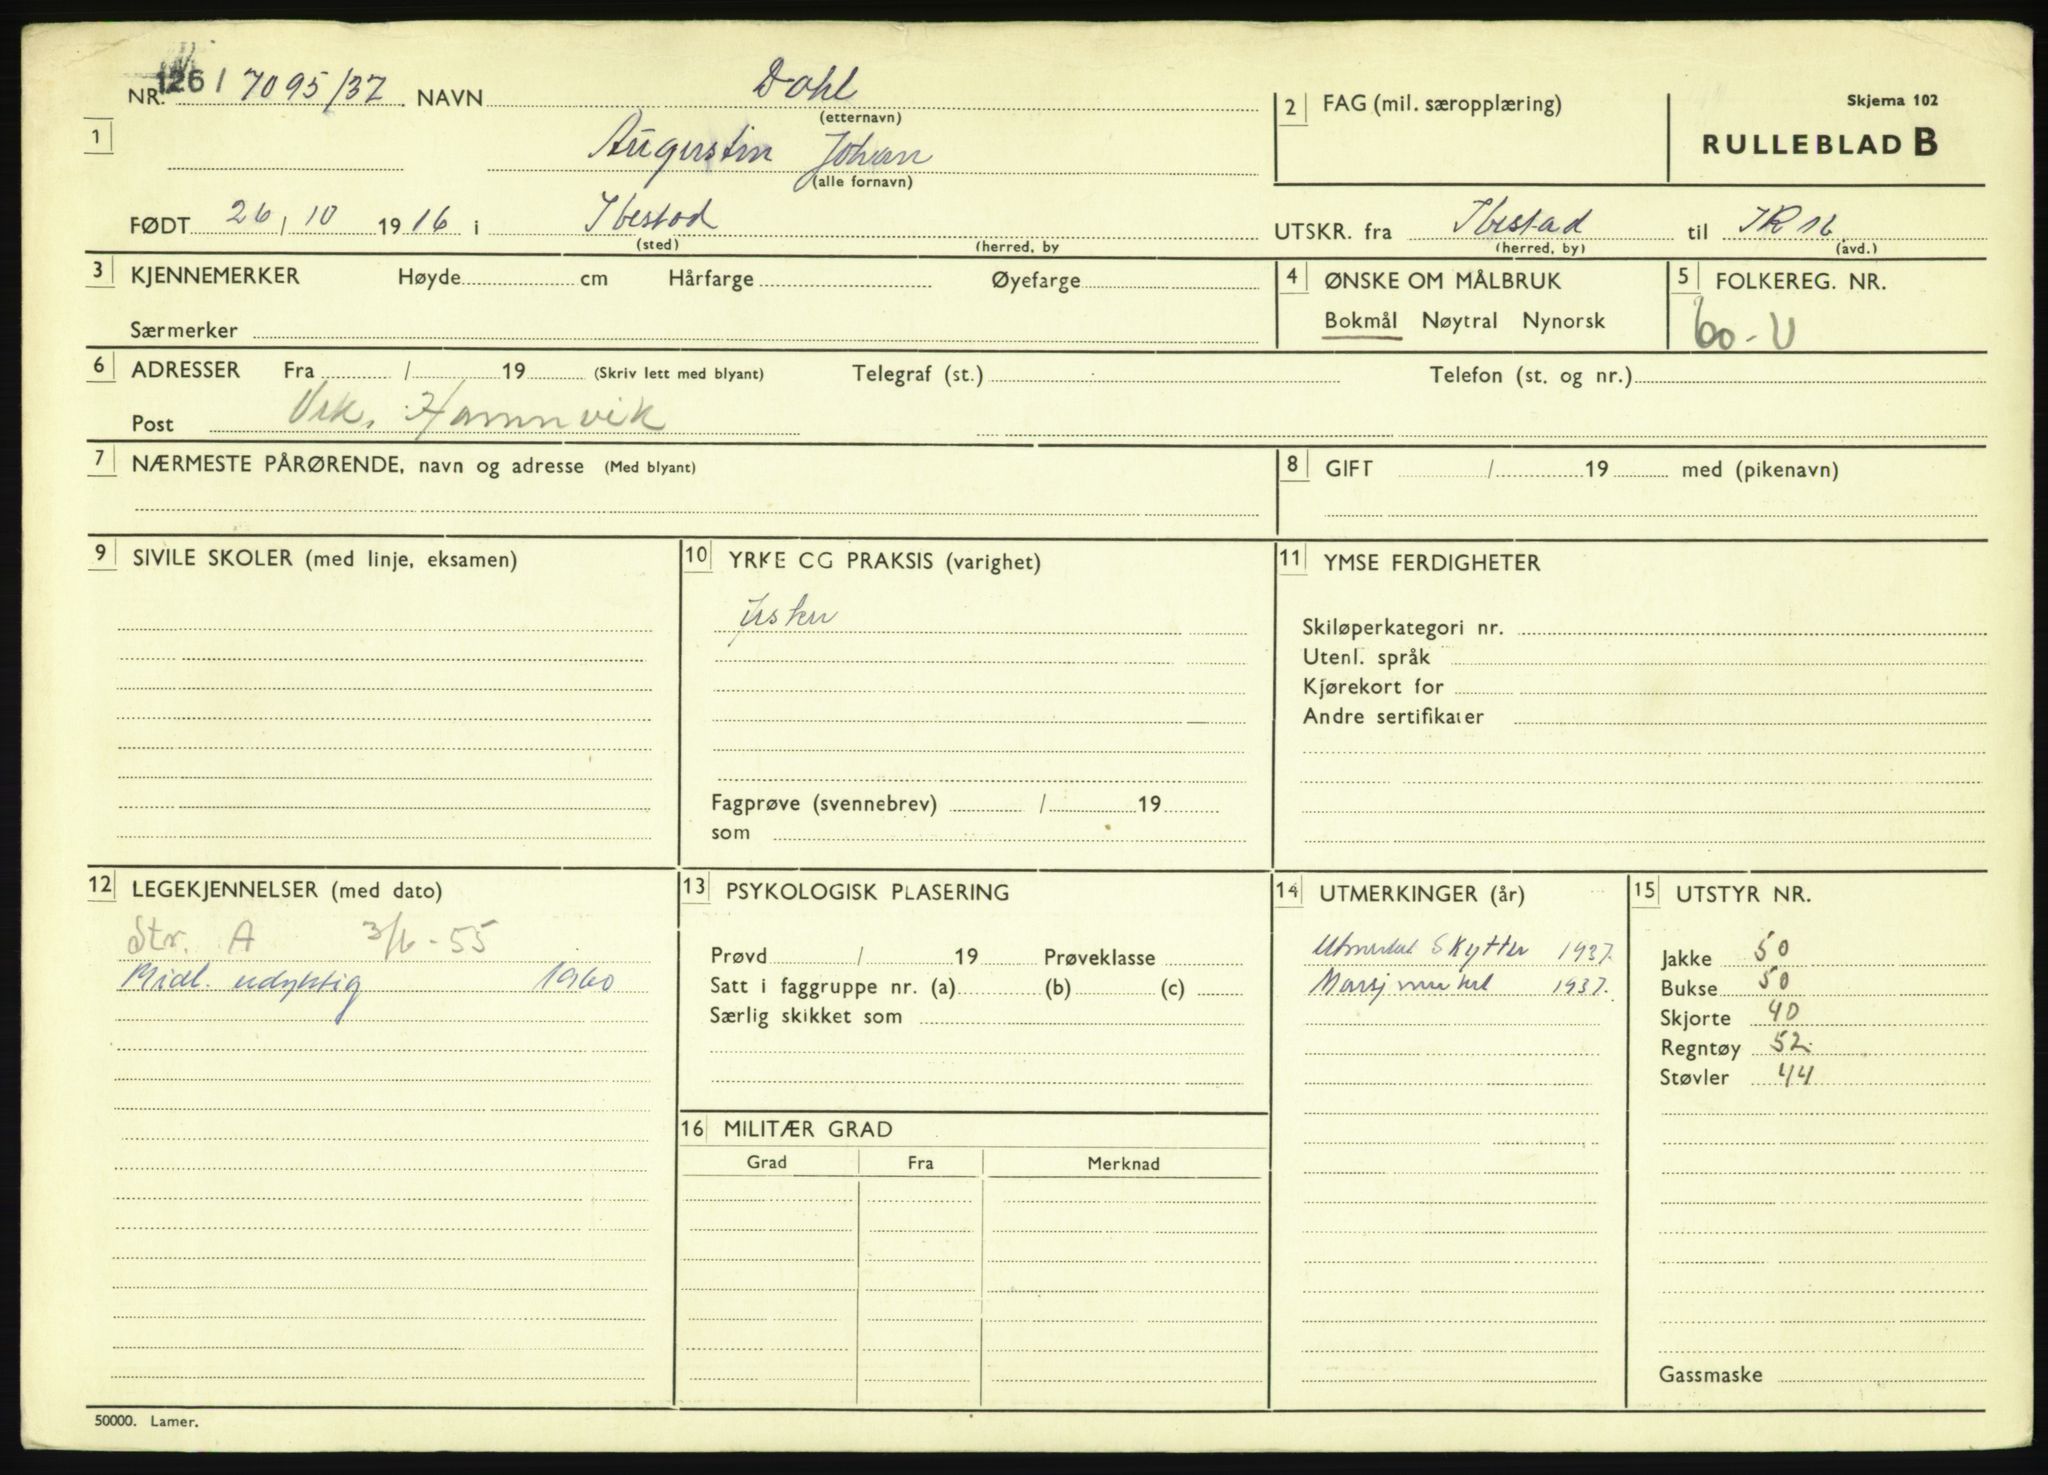 NR. 126 / 7095/37 NAVN Dahl
(etternavn)
1 Augustin Johan
(alle fornavn)
FØDT 26 / 10 1916 i Ibestad
(sted) (herred, by
2 FAG (mil. særopplæring)
Skjema 102
RULLEBLAD B
UTSKR. fra Ibestad til IR 16
(herred, by) (avd.)
3 KJENNEMERKER Høyde cm Hårfarge Øyefarge
Særmerker
4 ØNSKE OM MÅLBRUK
Bokmål Nøytral Nynorsk
5 FOLKEREG. NR.
60-U
6 ADRESSER Fra / 19 (Skriv lett med blyant) Telegraf (st.) Telefon (st. og nr.)
Post Vik, Hamnvik
7 NÆRMESTE PÅRØRENDE, navn og adresse (Med blyant)
8 GIFT / 19 med (pikenavn)
9 SIVILE SKOLER (med linje, eksamen)
10 YRKE CG PRAKSIS (varighet)
fisker
Fagprøve (svennebrev) / 19
som
11 YMSE FERDIGHETER
Skiløperkategori nr.
Utenl. språk
Kjørekort for
Andre sertifikater
12 LEGEKJENNELSER (med dato)
Str. A 3/6-55
Midl. udyktig 1960
13 PSYKOLOGISK PLASERING
Prøvd / 19 Prøveklasse
Satt i faggruppe nr. (a) (b) (c)
Særlig skikket som
14 UTMERKINGER (år)
Utmerket Skytter 1937.
Marsjmerket 1937.
15 UTSTYR NR.
Jakke 50
Bukse 50
Skjorte 40
Regntøy 52
Støvler 44
Gassmaske
16 MILITÆR GRAD
Grad Fra Merknad
50000. Lamer.